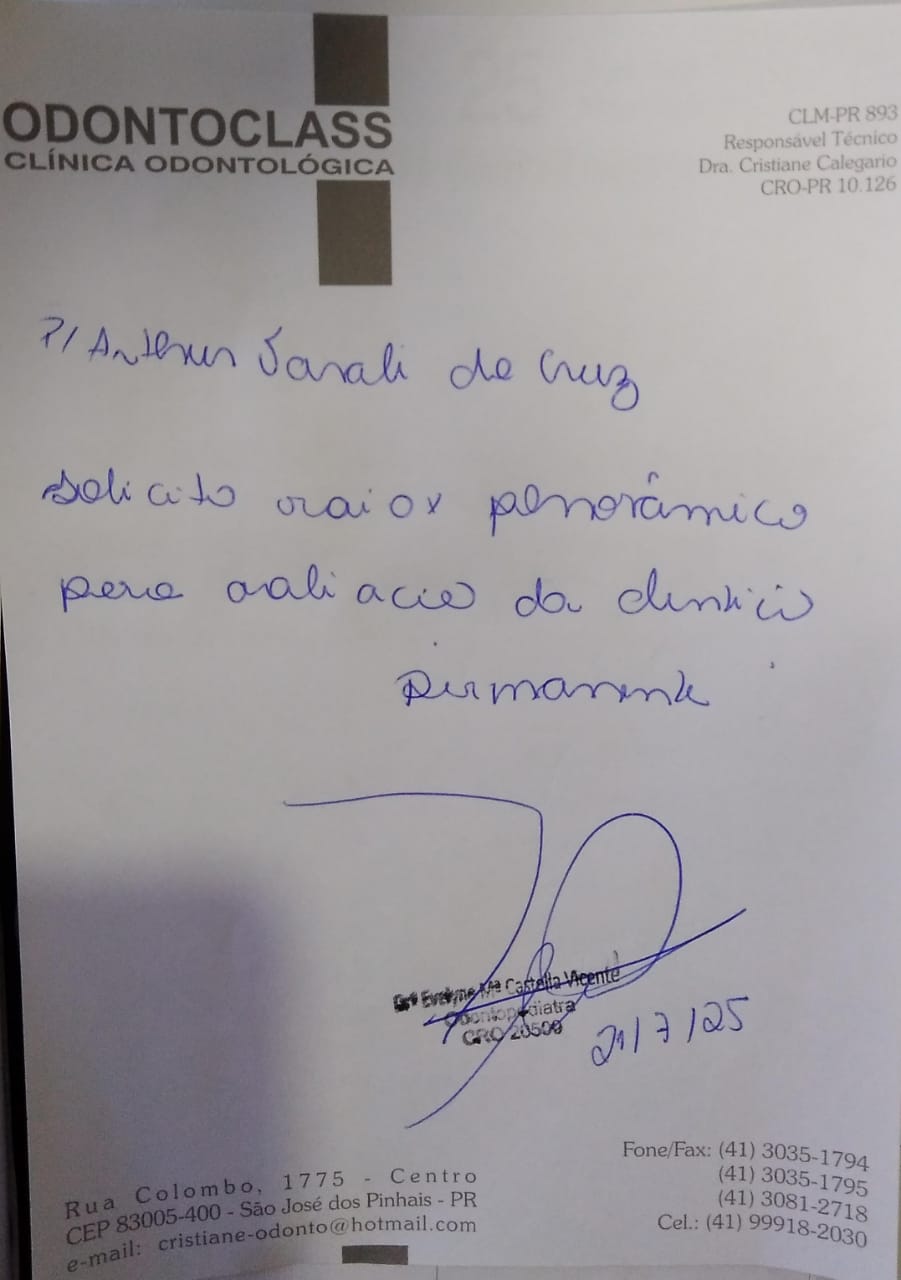 ODONTOCLASS
CLÍNICA ODONTOLÓGICA
CLM-PR 893
Responsável Técnico
Dra. Cristiane Calegario
CRO-PR 10.126
P/ de Cruz
solicito raio x panorâmico
para avaliação da dentição
permanente
Drª Evelyne Mª Castella Vicente
Odontopediatra
CRO 20509
21/7/25
Rua Colombo, 1775 - Centro
CEP 83005-400 - São José dos Pinhais - PR
e-mail: cristiane-odonto@hotmail.com
Fone/Fax: (41) 3035-1794
(41) 3035-1795
(41) 3081-2718
Cel.: (41) 99918-2030